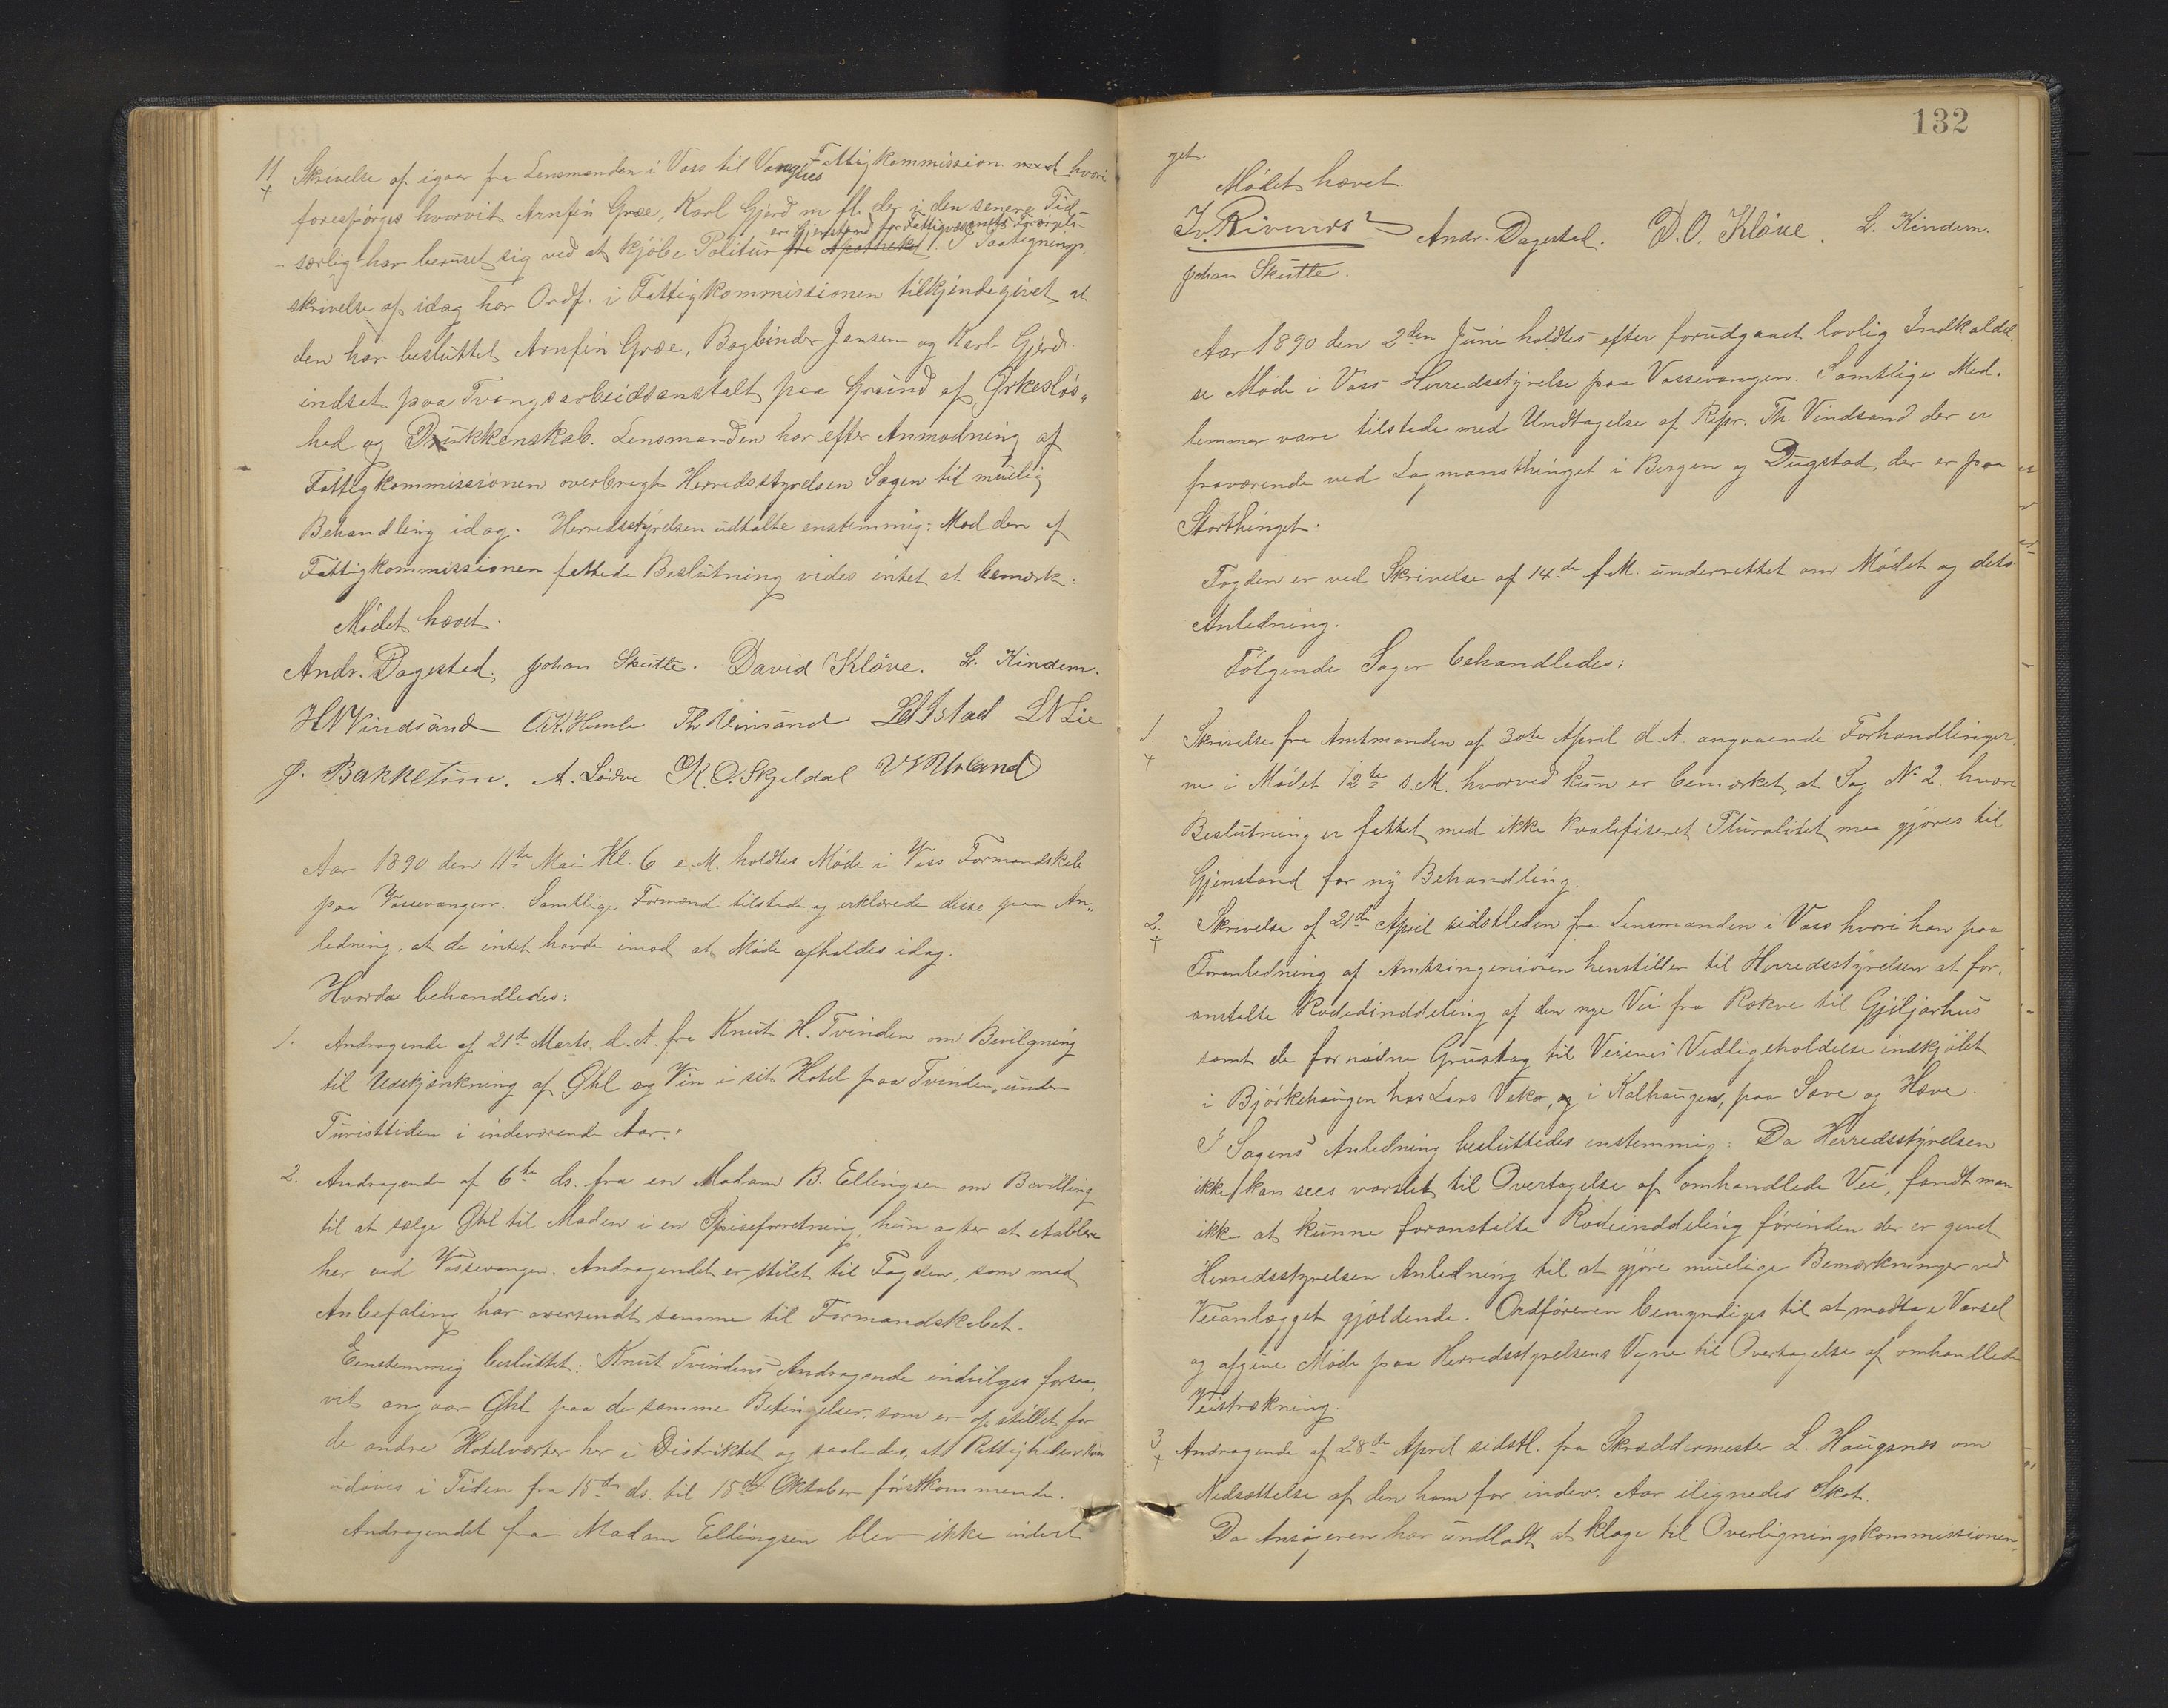 11 Skrivelse af igaar fra Lensmanden i Voss til Vangies Fattigkommission med hvori
forespørges hvorvit Arnfin Græe, Karl Gjerd m fl. der i den senere Tid
er Gjenstand for Fattigvæsenets Forsørgels-
særlig har beruset sig ved at kjøbe Politur fra Apotheket. I Paategnings-
skrivelse af idag har Ordf. i Fattigkommissionen tilkjendegivet at
den har besluttet Arnfin Græe, Bogbinder Jansen og Karl Gjerd
indsat paa Tvangsarbeidsanstalt paa Grund af Ørkesløs„
hed og Drukkenskab. Lensmanden har efter Anmodning af
Fattigkommissionen overbragt Herredsstyrelsen Sagen til muelig
Behandling idag. Herredsstyrelsen udtalte enstemmig: Mod den af
Fattigkommissionen fattede Beslutning vides intet at bemærke.
Mødet hævet.
Andr. Dagestad. Johan Skutle. David Kløve. L. Kindem.
HN Vindsand O.K. Himle Th Vinsand LB Istad LN Lie
J. Bakketun. A. Lødve K. O. Skjeldal VS Urland
Aar 1890 den 11te Mai Kl. 6 e.M. holdtes Møde i Voss Formandskab
paa Vossevangen. Samtlige Formænd tilstede og erklærede disse paa An„
ledning, at de intet havde imod at Møde afholdes idag.
Hvorda behandledes:
1. Andragende af 21de Marts d.A. fra Knut H. Tvinden om Bevilgning
til Udskjænkning af Øhl og Vin i sit Hotel paa Tvinden, under
Turisttiden i indeværende Aar.
2. Andragende af 6te ds. fra en Madam B. Ellingsen om Bevilling
til at sælge Øhl til Maden i en Spiseforretning, hun agter at etablere
her ved Vossevangen. Andragendet er stilet til Fogden, som med
Anbefaling har oversendt samme til Formandskabet.
Eenstemmig besluttet: Knut Tvindens Andragende indvilges forsaa„
vit angaar Øhl paa de samme Betingelser, som er opstillet for
de andre Hotelværter her i Distriktet og saaledes, at Rettigheden kun
udøves i Tiden fra 15de ds. til 15de Oktober førstkommende.
Andragendet fra Madam Ellingsen blev ikke indvil
132
get.
Mødet hævet.
Iv. Rivenæs Andr. Dagestad. D.O. Kløve. L. Kindem.
Johan Skutle.
Aar 1890 den 2den Juni holdtes efter forudgaaet lovlig Indkaldel„
se Møde i Voss Herredsstyrelse paa Vossevangen. Samtlige Med„
lemmer vare tilstede med Undtagelse af Repr. Th. Vindsand der er
fraværende ved Lagmansthinget i Bergen og Dugstad, der er paa
Storthinget.
Fogden er ved Skrivelse af 14de f.M. underrettet om Mødet og dets
Anledning.
Følgende Sager behandledes:
1. Skrivelse fra Amtmanden af 30te April d.A. angaaende Forhandlinger„
ne i Mødet 12te s.M. hvorved kun er bemærket, at Sag No 2 hvori
Beslutning er fattet med ikke kvalifiseret Pluralitet maa gjøres til
Gjenstand for ny Behandling.
2. Skrivelse af 21de April sidstleden fra Lensmanden i Voss hvori han paa
Foranledning af Amtsingeniøren henstiller til Herredsstyrelsen at for„
anstalte Rodedinddeling af den nye Vei fra Rokve til Gjiljarhus
samt de fornødne Grustag til Veienes Vedligeholdelse indkjøbt
i Bjørkehaugen hos Lars Veka, og i Kalhaugen, paa Save og Hæve.
I Sagens Anledning besluttedes enstemmig: Da Herredsstyrelsen
ikke kan sees varslet til Overtagelse af omhandlede Vei, fandt man
ikke at kunne foranstalte Rodeinddeling førinden der er givet
Herredsstyrelsen Anledning til at gjøre muelige Bemærkninger ved
Veianlægget gjældende. Ordføreren bemyndiges til at modtage Varsel
og afgive Møde paa Herredsstyrelsens Vegne til Overtagelse af omhandlede
Veistrækning.
3 Andragende af 28de April sidstl. fra Skræddermester L. Haugsnes om
Nedsættelse af den ham for indev. Aar ilignedes Skat.
Da Ansøgeren har undladt at klage til Overligningskommissionen,